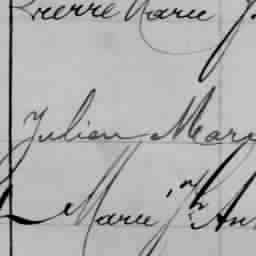 Pierre Marie J
Julien Marie
Marie Jh An